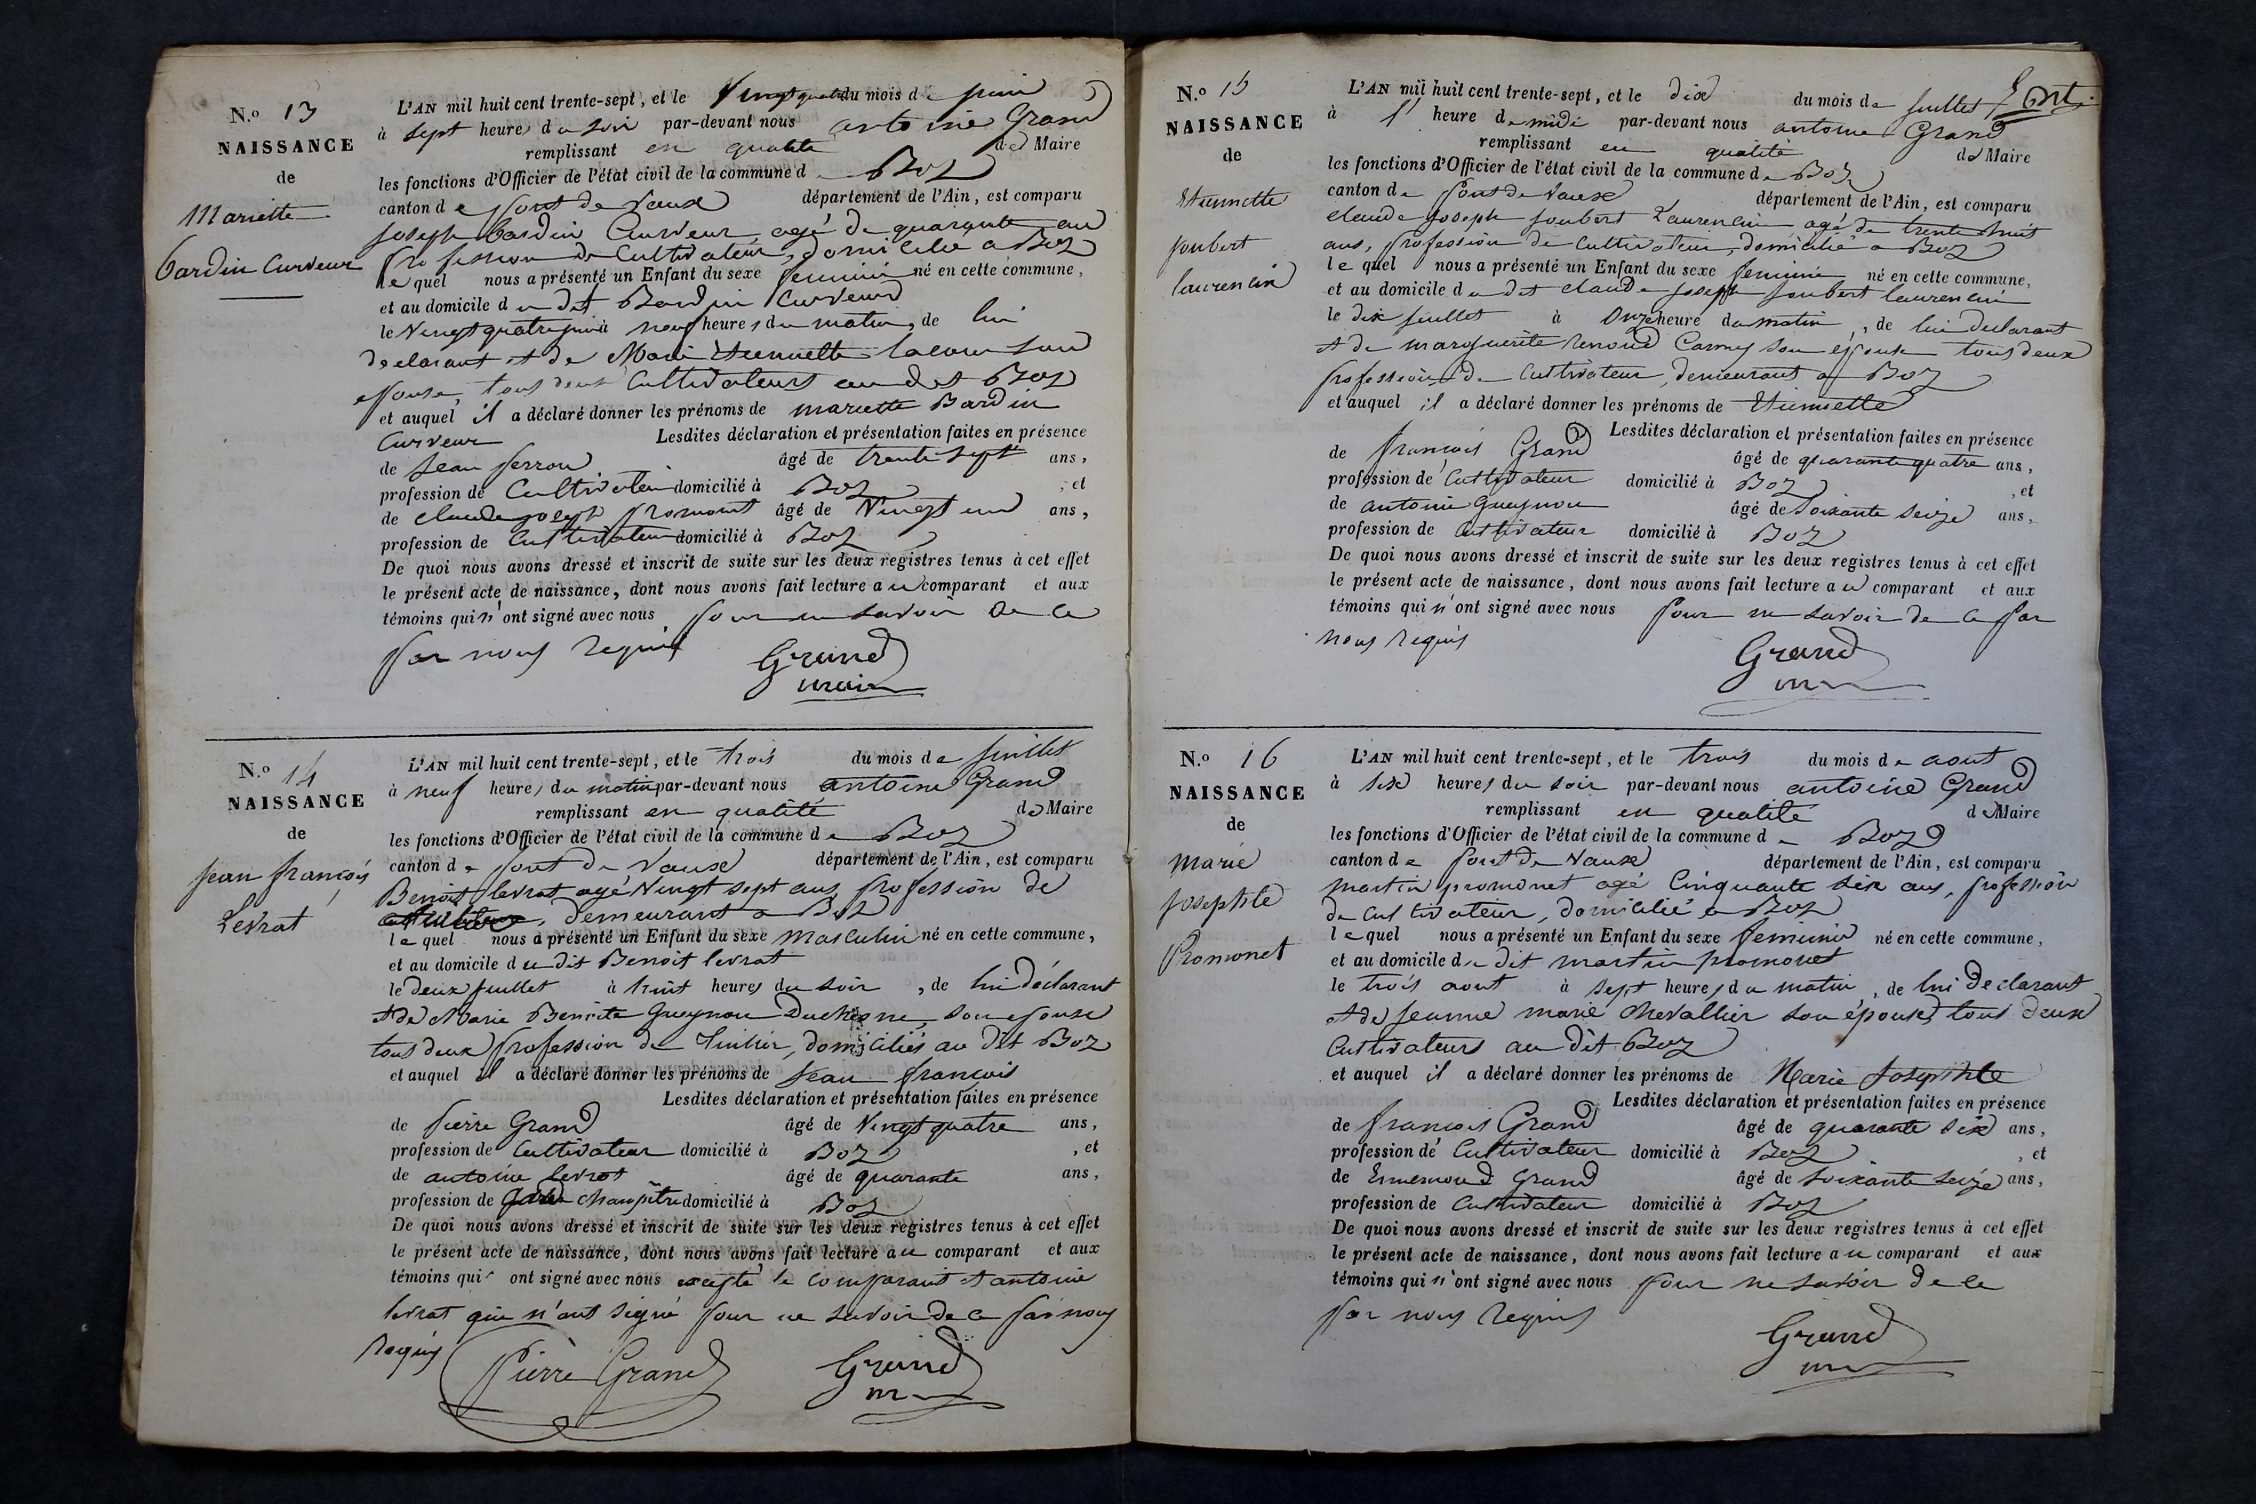 N.o 13
NAISSANCE
de
Mariette
Bardin Curveur
L'AN mil huit cent trente-sept, et le Vingt quatre du mois de juin
à sept heures du soir par-devant nous antoine Grand
remplissant en qualité de Maire
les fonctions d'Officier de l'état civil de la commune de Boz
canton de pont de Vaux département de l'Ain, est comparu
joseph Bardin Curveur agé de quarante ans
profession de Cultivateur, domicilié a Boz
lequel nous a présenté un Enfant du sexe feminin né en cette commune,
et au domicile du dit Bardin Curveur
le Vingt quatre juin à neuf heures du matin, de lui
declarant et de Marie Etiennette lacour son
epouse, tous deux Cultivateurs au dit Boz
et auquel il a déclaré donner les prénoms de mariette Bardin
Curveur Lesdites déclaration et présentation faites en présence
de jean perron âgé de trente sept ans,
profession de Cultivateur domicilié à Boz, et
de claude joseph promonet âgé de Vingt un ans,
profession de Cultivateur domicilié à Boz
De quoi nous avons dressé et inscrit de suite sur les deux registres tenus à cet effet
le présent acte de naissance, dont nous avons fait lecture au comparant et aux
témoins qui n'ont signé avec nous pour ne savoir de ce
par nous requis
Grand
maire
N.o 14
NAISSANCE
de
jean françois
Levrat
L'AN mil huit cent trente-sept, et le trois du mois de juillet
à neuf heures du matin par-devant nous antoine Grand
remplissant en qualité de Maire
les fonctions d'Officier de l'état civil de la commune de Boz
canton de pont de Vaux département de l'Ain, est comparu
Benoit levrat agé Vingt sept ans, profession de
demeurant a Boz
lequel nous a présenté un Enfant du sexe masculin né en cette commune,
et au domicile du dit Benoit levrat
le deux juillet à huit heures du soir, de lui déclarant
et de Marie Benoite Gueynon Duchesne, son epouse
tous deux profession de domiciliés au dit Boz
et auquel il a déclaré donner les prénoms de jean françois
Lesdites déclaration et présentation faites en présence
de pierre Grand âgé de Vingt quatre ans,
profession de Cultivateur domicilié à Boz, et
de antoine levrat âgé de quarante ans,
profession de garde champêtre domicilié à Boz
De quoi nous avons dressé et inscrit de suite sur les deux registres tenus à cet effet
le présent acte de naissance, dont nous avons fait lecture au comparant et aux
témoins qui ont signé avec nous excepté le comparant et antoine
levrat qui n'ont signé pour ne savoir de ce par nous
requis
Pierre Grand
Grand
N.o 15
NAISSANCE
de
Etiennette
joubert
laurencin
L'AN mil huit cent trente-sept, et le dix du mois de juillet
à 1 heure de midi par-devant nous antoine Grand
remplissant en qualité de Maire
les fonctions d'Officier de l'état civil de la commune de Boz
canton de pont de Vaux département de l'Ain, est comparu
claude joseph joubert Laurencin agé de trente huit
ans, profession de Cultivateur, domicilié a Boz
lequel nous a présenté un Enfant du sexe feminin né en cette commune,
et au domicile du dit claude joseph joubert laurencin
le dix juillet à onze heure du matin, de lui declarant
et de marguerite Renoud Camus son épouse tous deux
profession de Cultivateur, demeurant a Boz
et auquel il a déclaré donner les prénoms de Etiennette
Lesdites déclaration et présentation faites en présence
de françois Grand âgé de quarante quatre ans,
profession de Cultivateur domicilié à Boz, et
de antoine Gueynon âgé de Soixante seize ans,
profession de Cultivateur domicilié à Boz
De quoi nous avons dressé et inscrit de suite sur les deux registres tenus à cet effet
le présent acte de naissance, dont nous avons fait lecture au comparant et aux
témoins qui n'ont signé avec nous pour ne savoir de ce par
nous requis
Grand
N.o 16
NAISSANCE
de
marie
josephte
Promonet
L'AN mil huit cent trente-sept, et le trois du mois de aout
à six heures du soir par-devant nous antoine Grand
remplissant en qualité de Maire
les fonctions d'Officier de l'état civil de la commune de Boz
canton de pont de Vaux département de l'Ain, est comparu
martin promonet agé Cinquante six ans, profession
de Cultivateur, domicilié a Boz
lequel nous a présenté un Enfant du sexe feminin né en cette commune,
et au domicile du dit martin promonet
le trois aout à sept heures du matin, de lui declarant
et de jeanne marie Chevallier son épouse, tous deux
Cultivateurs au dit Boz
et auquel il a déclaré donner les prénoms de Marie josephte
Lesdites déclaration et présentation faites en présence
de françois Grand âgé de quarante six ans,
profession de Cultivateur domicilié à Boz, et
de Ennemond Grand âgé de soixante seize ans,
profession de Cultivateur domicilié à Boz
De quoi nous avons dressé et inscrit de suite sur les deux registres tenus à cet effet
le présent acte de naissance, dont nous avons fait lecture au comparant et aux
témoins qui n'ont signé avec nous pour ne savoir de ce
par nous requis
Grand